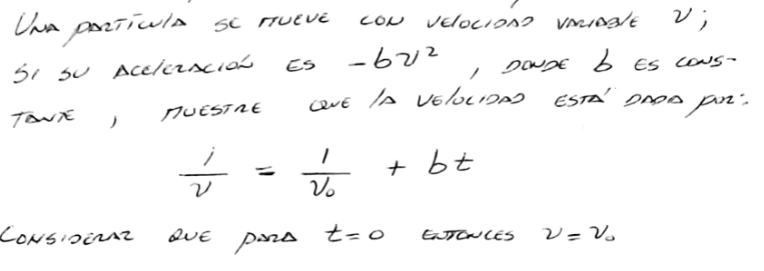 UNA PARTÍCULA SE MUEVE CON VELOCIDAD VARIABLE v;
SI SU ACELERACIÓN ES -bv², DONDE b ES CONS-
TANTE, MUESTRE QUE LA VELOCIDAD ESTÁ DADA POR:
1/v = 1/v₀ + bt
CONSIDERAR QUE PARA t=0 ENTONCES v=v₀